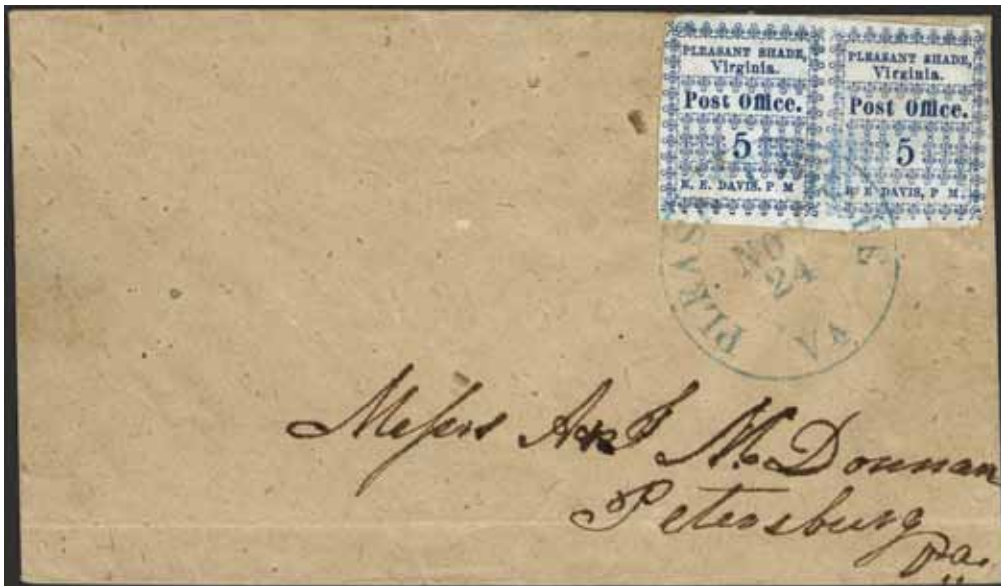 PLEASANT SHADE,
Virginia.
Post Office.
5
R. E. DAVIS, P M
PLEASANT SHADE,
Virginia.
Post Office.
5
R. E. DAVIS, P M.
PLEAS
NO
24
VA
Messrs A & J M. Donnan
Petersburg
Va.